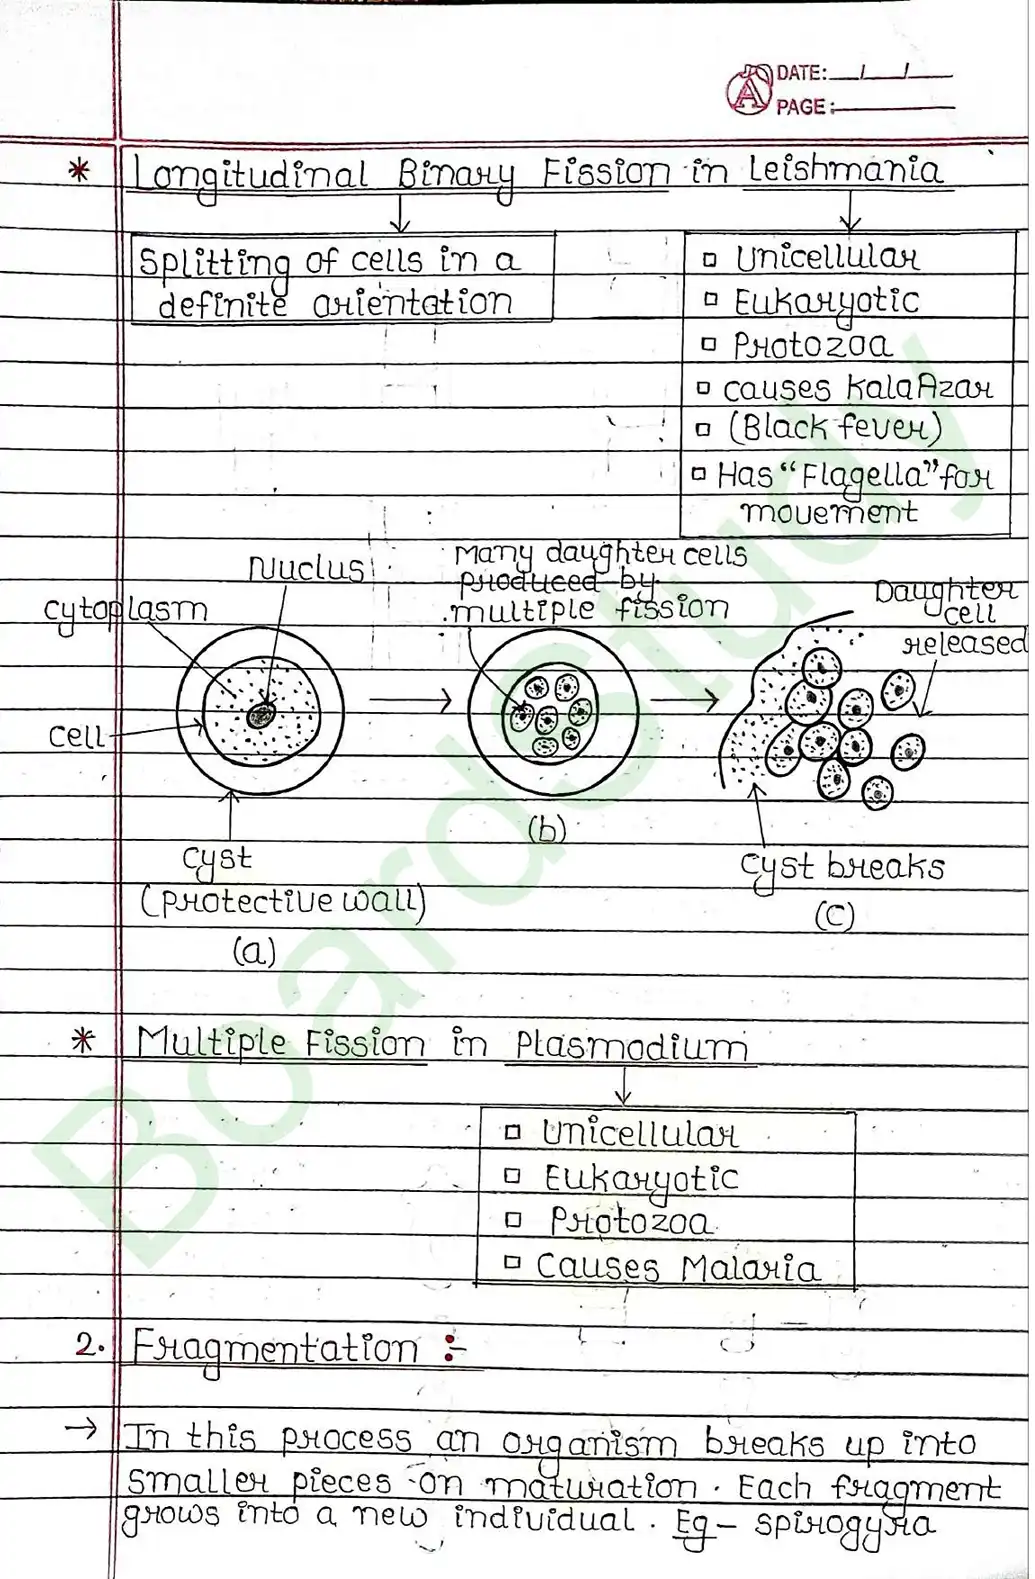 DATE: / /
PAGE:
* Longitudinal Binary Fission in Leishmania
Splitting of cells in a
definite orientation
Unicellular
Eukaryotic
Protozoa
causes Kala Azar
(Black fever)
Has "Flagella" for
movement
Nuclus
Many daughter cells
produced by
multiple fission
Daughter
cell
released
cytoplasm
cell
cyst
(protective wall)
(a)
(b)
cyst breaks
(c)
* Multiple Fission in Plasmodium
Unicellular
Eukaryotic
Protozoa
Causes Malaria
2. Fragmentation :-
→ In this process an organism breaks up into
smaller pieces on maturation. Each fragment
grows into a new individual. Eg - spirogyra
BoardStudy